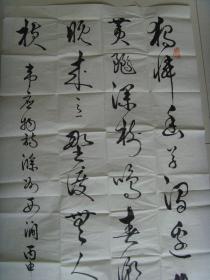 独怜幽草涧边
黄鹂深树鸣春潮
晚来急野渡无人
横 韦应物诗滁州西涧 西